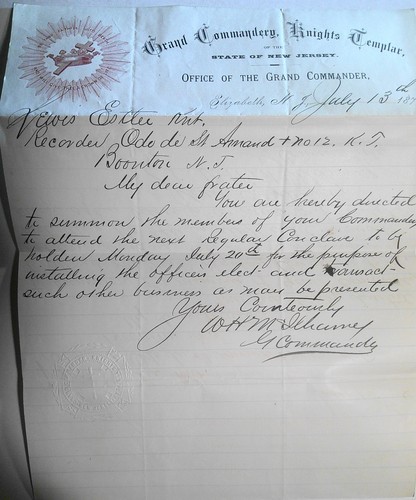 Grand Commandery, Knights Templar,
OF THE
STATE OF NEW JERSEY.
OFFICE OF THE GRAND COMMANDER,
Elizabeth, N. J. July 13th 187
Lewis Estler Knt.
Recorder Odo de St Amand + No 12. K. T.
Boonton N. J.
My dear frater
You are hereby directed
to summon the members of your Commandery
to attend the next Regular Conclave to be
holden Monday July 20th for the purpose of
installing the officers elect and transact
such other business as may be presented
Yours Courteously
W H McIlhaney
G Commander